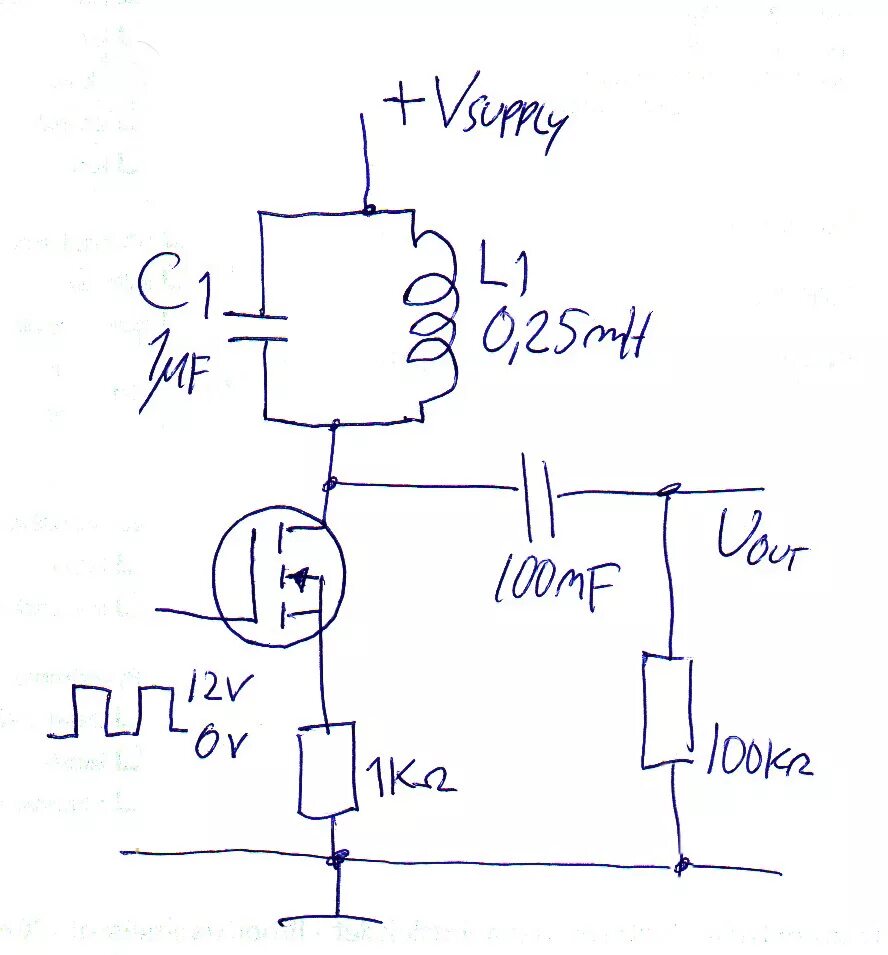 +VSUPPLY
C1
1µF
L1
0,25mH
100nF
VOUT
12V
0V
1KΩ
100KΩ